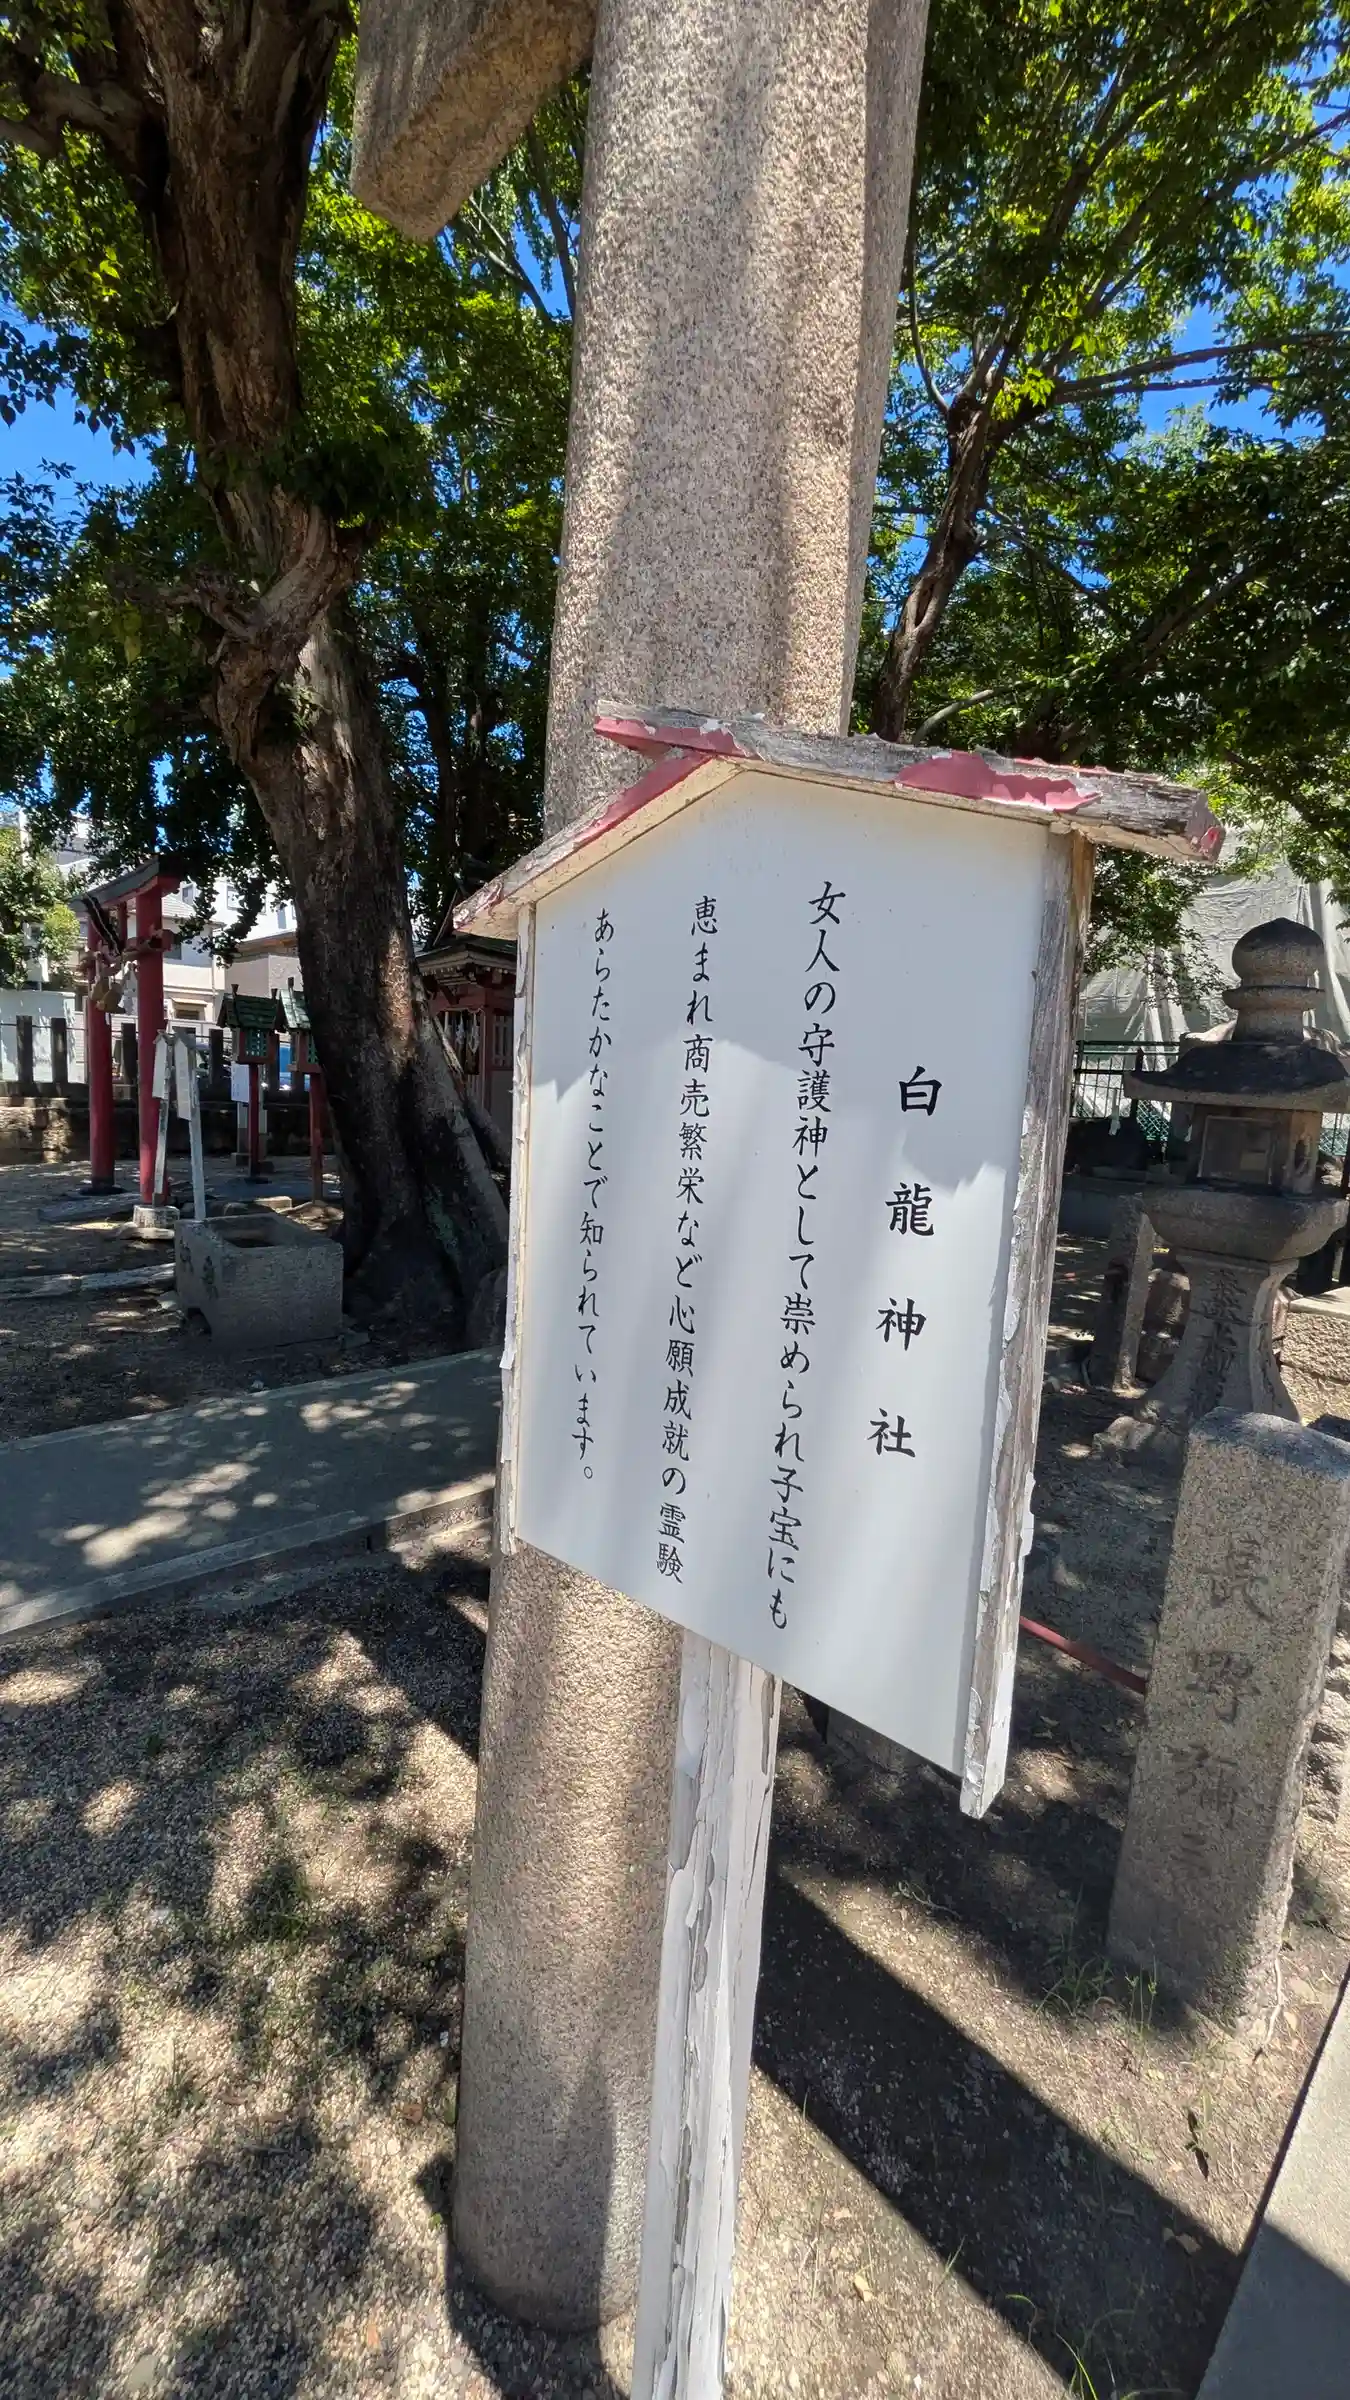 白龍神社
女人の守護神として崇められ子宝にも
恵まれ商売繁栄など心願成就の霊験
あらたかなことで知られています。